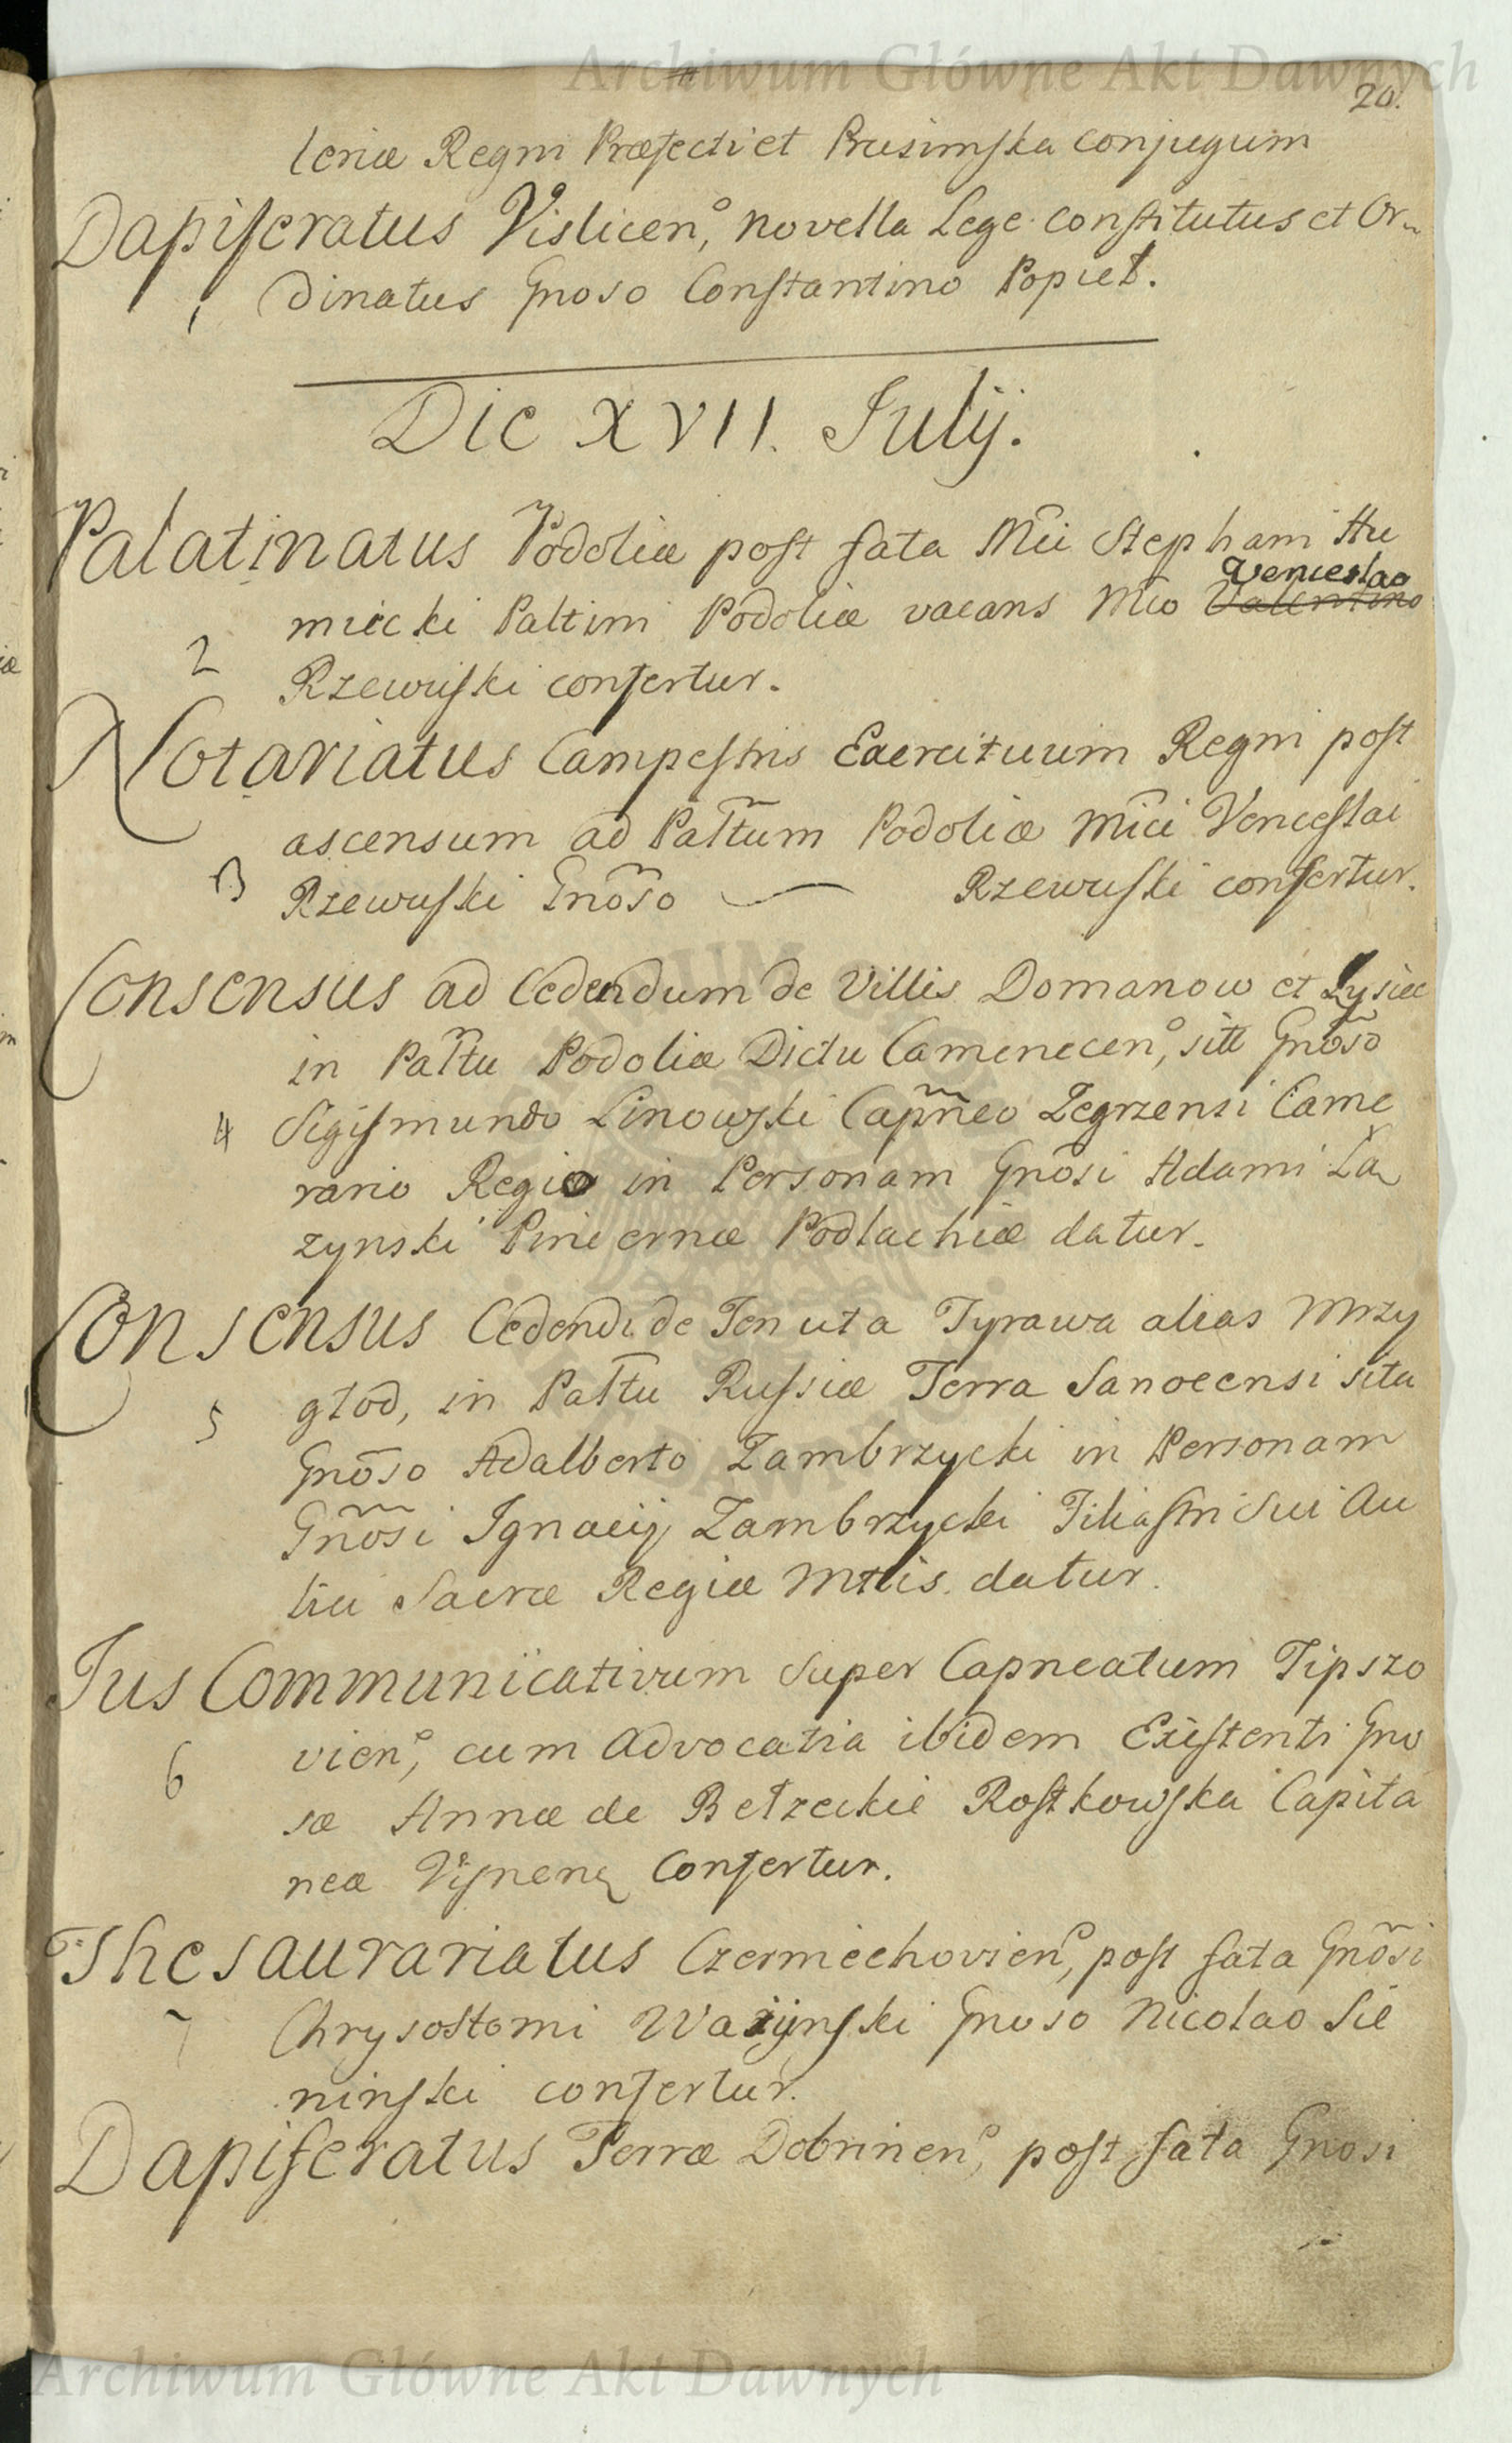 Archiwum Główne Akt Dawnych
20.
leriæ Regni Præfecti et Prusimska conjugum
Dapiferatus Vislicen̊, novella Lege constitutus et Or-
1 dinatus Gnoso Constantino Popiel.
Die XVII. Julij.
Palatinatus Podoliæ post fata Mci Stephani Hu
Venceslao
miecki Paltini Podoliæ vacans Mco Valentino
2 Rzewuski confertur.
Notariatus Campestris Exercituum Regni post
ascensum ad Paltum Podoliæ Mici Venceslai
3 Rzewuski Gnoso — Rzewuski confertur.
Consensus ad Cedendum de Villis Domanow et Lysiec
in Paltu Podoliæ Dictu Camenecen̊, sitt Gnoso
4 Sigismundo Linowski Capneo Zegrzensi Came
rario Regio in Personam Gnosi Adami Ła
zynski Pincernæ Podlachiæ datur.
Consensus Cedendi de Tenuta Tyrawa alias Mrzy
głod, in Paltu Russiæ Terra Sanocensi sita
5 Gnoso Adalberto Zambrzycki in Personam
Gnosi Ignacij Zambrzycki Filiastri Sui Au
lici Sacræ Regiæ Mttis. datur.
Jus Communicativum super Capneatum Tipszo
6 vien̊, cum Advocatia ibidem Existenti Gno
sæ Annæ de Bełzeckie Rostkowska Capita
neæ Visnen Confertur.
Thesaurariatus Czerniechovien̊, post fata Gnosi
7 Chrysostomi Ważynski Gnoso Nicolao Sie
ninski confertur.
Dapiferatus Terræ Dobrinen̊, post fata Gnosi
Archiwum Główne Akt Dawnych